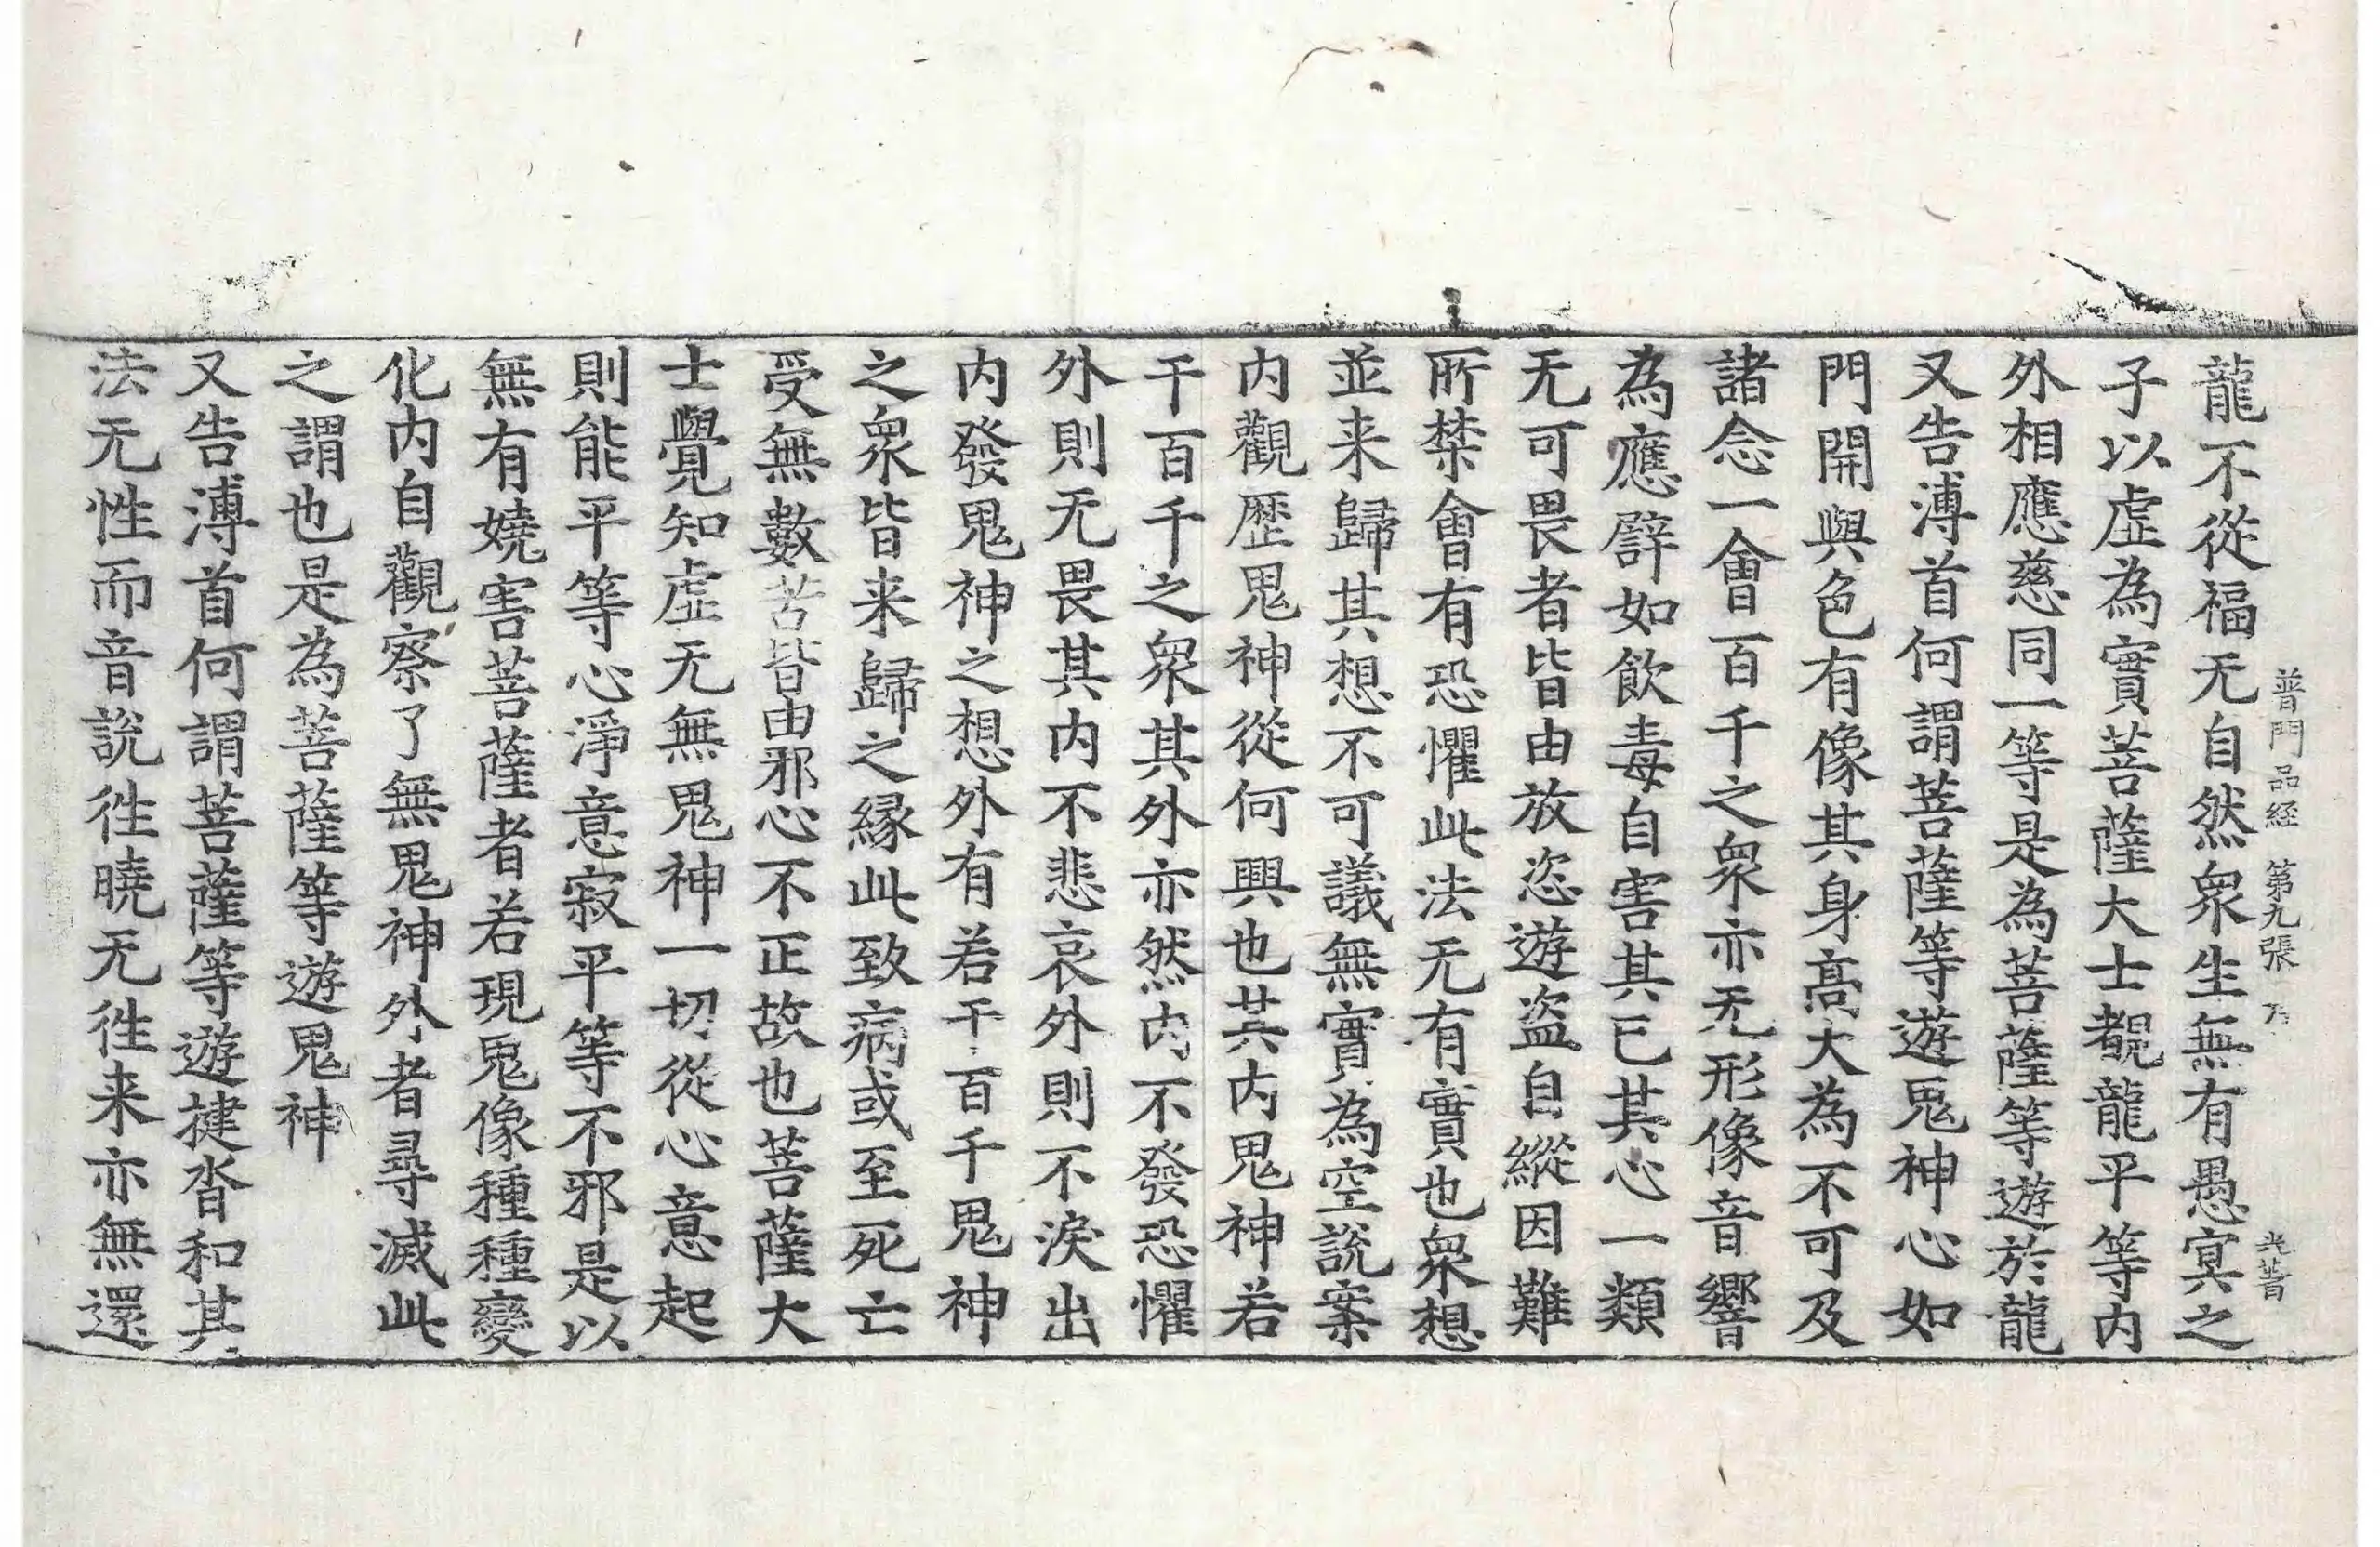 普門品経 第九張 乃 光著
龍不從福无自然衆生無有愚㝠之
子以虛為實菩薩大士覩龍平等内
外相應慈同一等是為菩薩等遊於龍
又告溥首何謂菩薩等遊鬼神心如
門開與色有像其身髙大為不可及
諸念一會百千之衆亦无形像音響
為應譬如飲毒自害其已其心一類
无可畏者皆由放恣遊盗自縱因難
所禁會有恐懼此法无有實也衆想
並来歸其想不可議無實為空說案
内觀歷鬼神從何興也其内鬼神若
干百千之衆其外亦然内不發恐懼
外則无畏其内不悲哀外則不淚出
内發鬼神之想外有若干百千鬼神
之衆皆来歸之縁此致病或至死亡
受無數苦皆由邪心不正故也菩薩大
士覺知虛无無鬼神一切從心意起
則能平等心淨意寂平等不邪是以
無有嬈害菩薩者若現鬼像種種變
化内自觀察了無鬼神外者尋滅此
之謂也是為菩薩等遊鬼神
又告溥首何謂菩薩等遊揵沓和其
法无性而音說徃曉无徃来亦無還